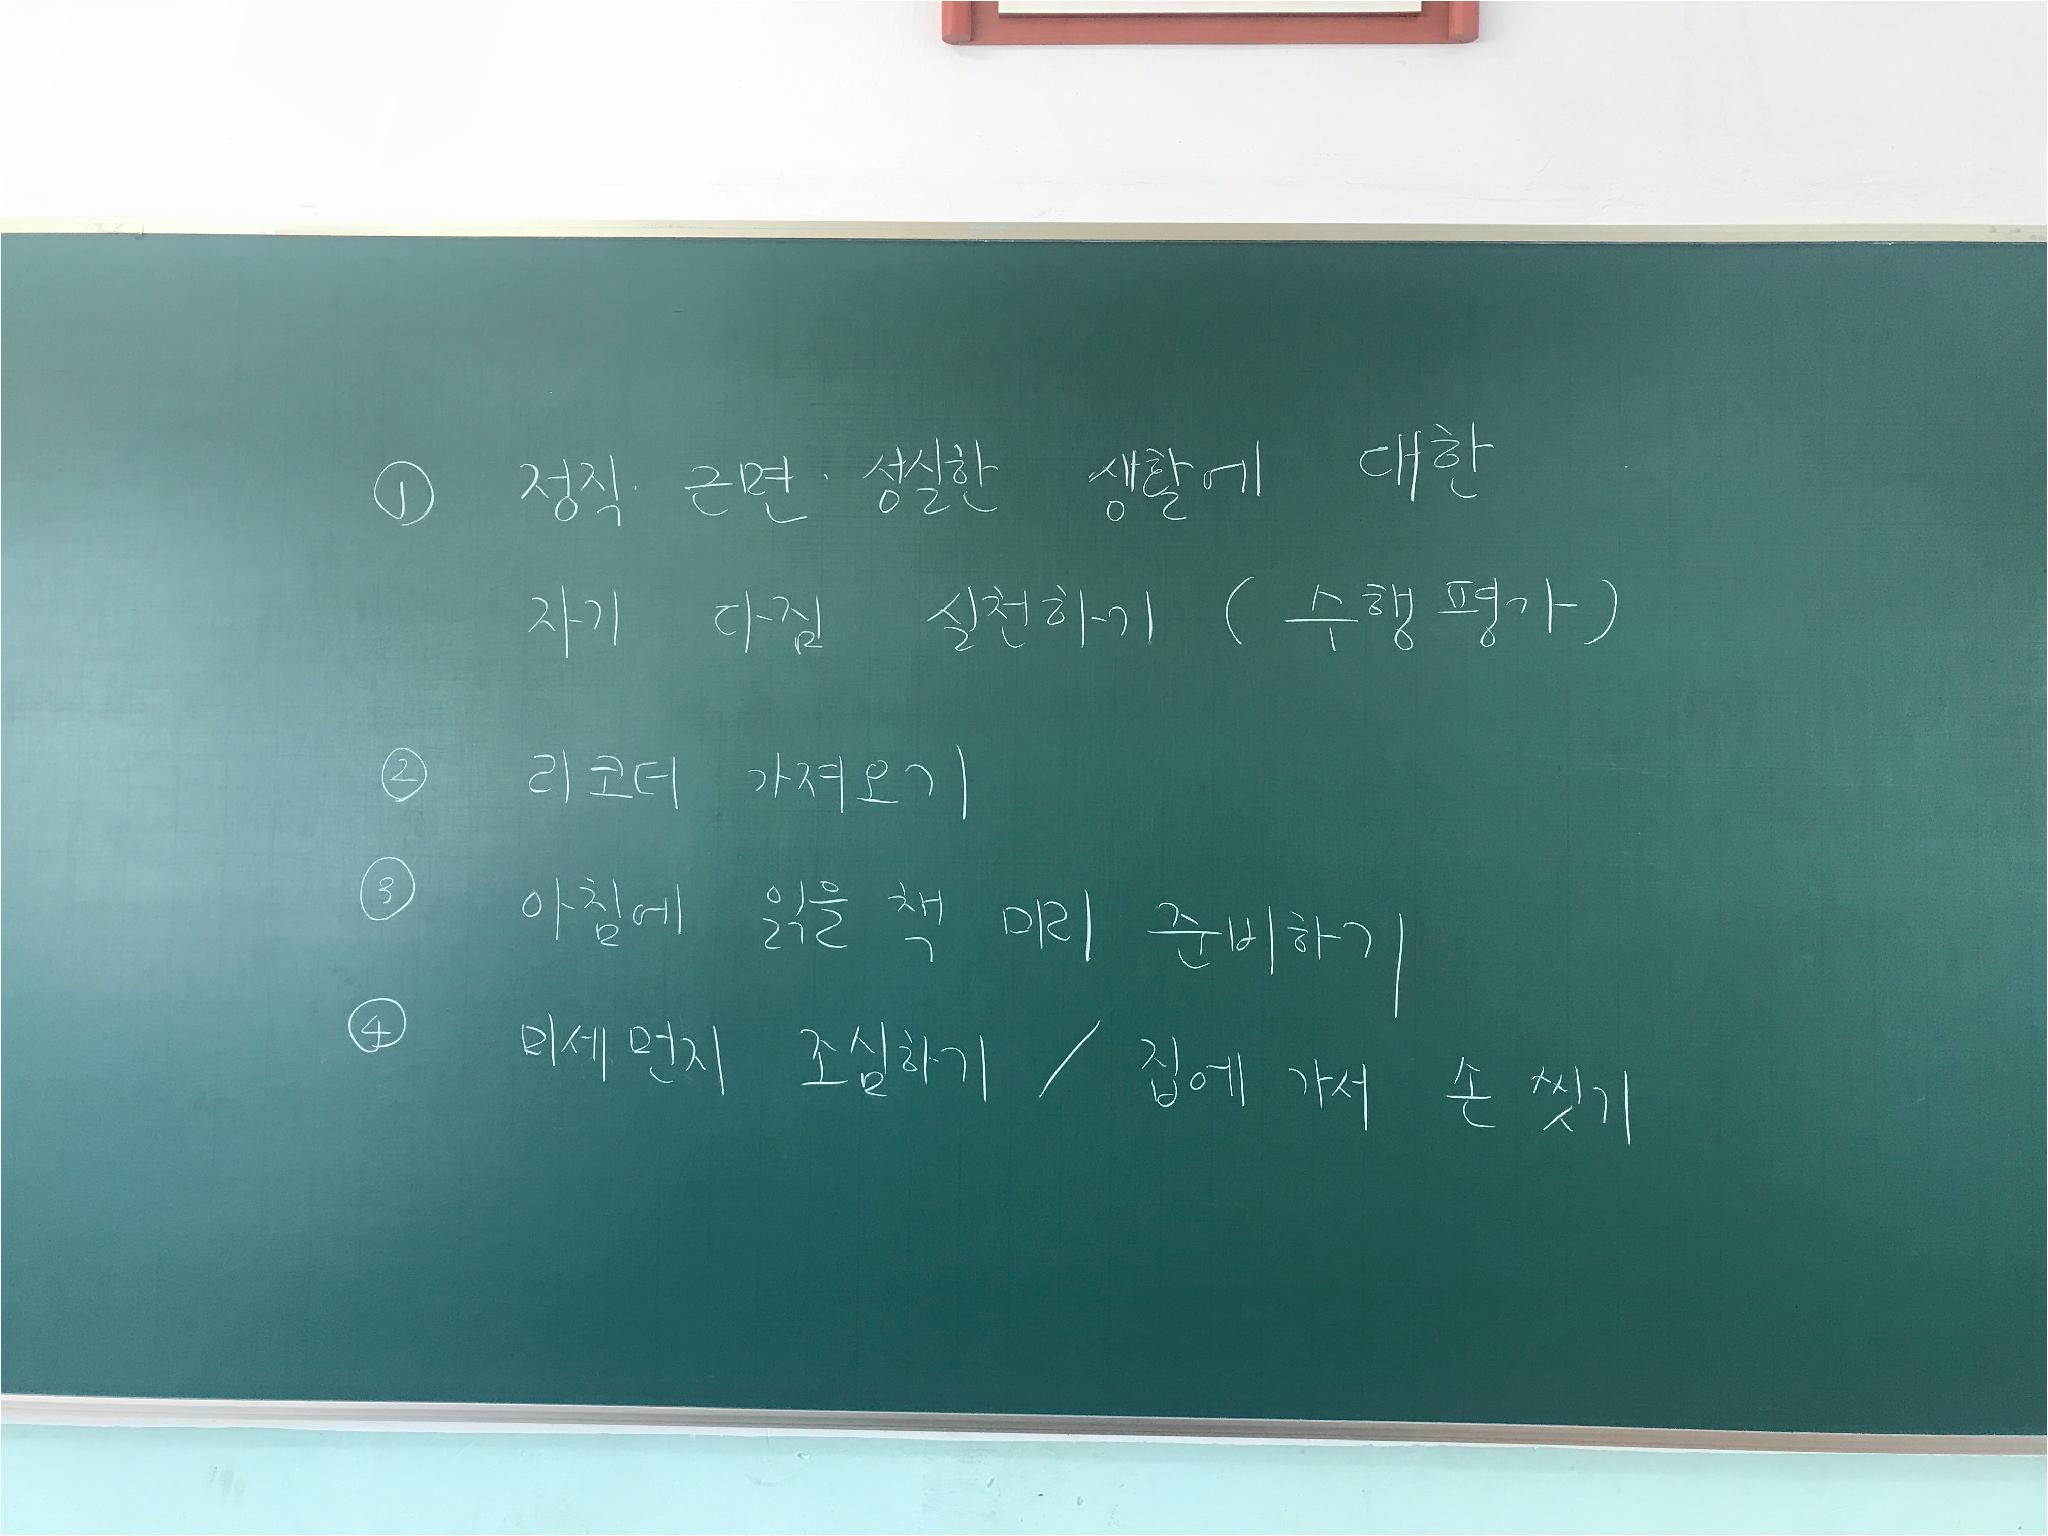 ① 정직·근면·성실한 생활에 대한
자기 다짐 실천하기 (수행평가)
② 리코더 가져오기
③ 아침에 읽을 책 미리 준비하기
④ 미세먼지 조심하기 / 집에 가서 손 씻기